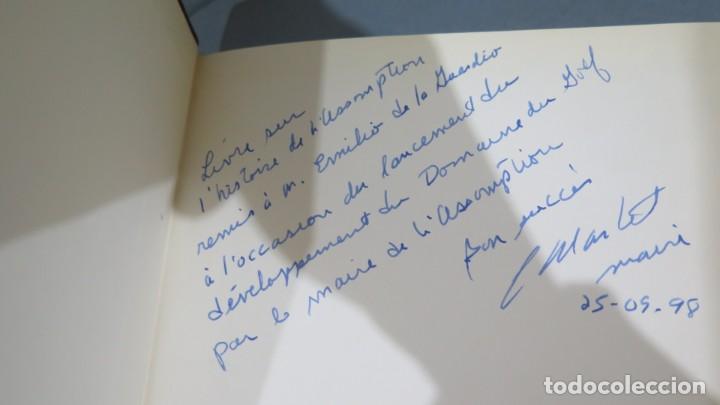 Livre sur
l'histoire de L'Assomption
remis à M. Emilio de la Guardio
à l'occasion du lancement du
développement du Domaine du Golf
par le maire de L'Assomption
Bon succès
maire
25-09-98
todocoleccion.net